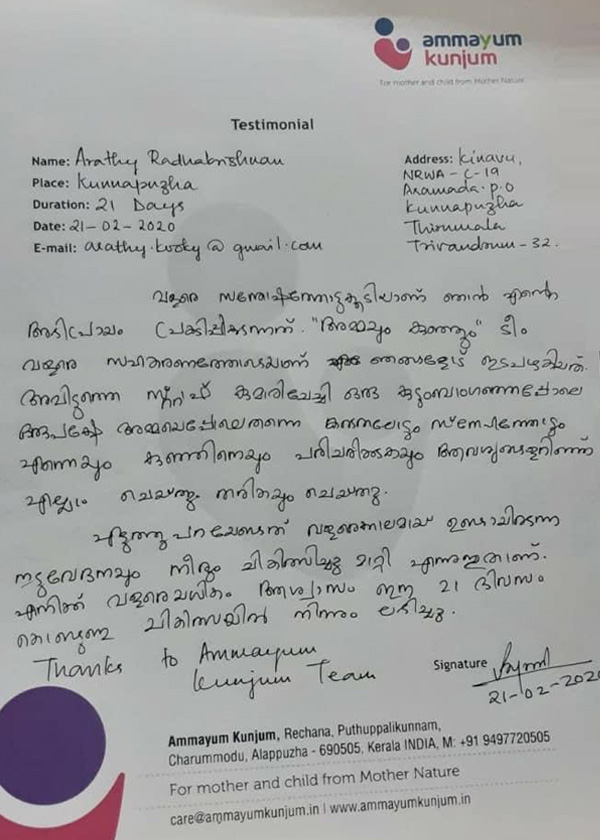 ammayum
kunjum
For mother and child from Mother Nature
Testimonial
Name: Arathy Radhakrishnan
Place: Kunnapuzha
Duration: 21 Days
Date: 21-02-2020
E-mail: arathy.kooky@gmail.com
Address: Kinavu,
NRWA-C-19
Aramada.P.O
Kunnapuzha
Thirumala
Trivandrum-32.
വളരെ സന്തോഷത്തോടുകൂടിയാണ് ഞാൻ എന്റെ
അഭിപ്രായം പ്രകടിപ്പിക്കുന്നത്. "അമ്മയും കുഞ്ഞും" ടീം
വളരെ സഹകരണത്തോടെയാണ് ഞങ്ങളോട് ഇടപഴകിയത്.
അവിടുത്തെ സ്റ്റാഫ് കുമാരിചേച്ചി ഒരു കുടുംബാംഗത്തെപ്പോലെ
അമ്മയെപ്പോലെതന്നെ കരുതലോടും സ്നേഹത്തോടും
എന്നെയും കുഞ്ഞിനെയും പരിചരിക്കുകയും ആവശ്യങ്ങളറിഞ്ഞ്
എല്ലാം ചെയ്തു തരികയും ചെയ്തു.
എടുത്തു പറയേണ്ടത് വളരെക്കാലമായ് ഉണ്ടായിരുന്ന
നടുവേദനയും നീരും ചികിത്സിച്ചു മാറ്റി എന്നുള്ളതാണ്.
എനിക്ക് വളരെയധികം ആശ്വാസം ഈ 21 ദിവസം
കൊണ്ടുള്ള ചികിത്സയിൽ നിന്നും ലഭിച്ചു.
Thanks to Ammayum
Kunjum Team
Signature
21-02-2020
Ammayum Kunjum, Rechana, Puthuppalikunnam,
Charummodu, Alappuzha - 690505, Kerala INDIA, M: +91 9497720505
For mother and child from Mother Nature
care@ammayumkunjum.in | www.ammayumkunjum.in